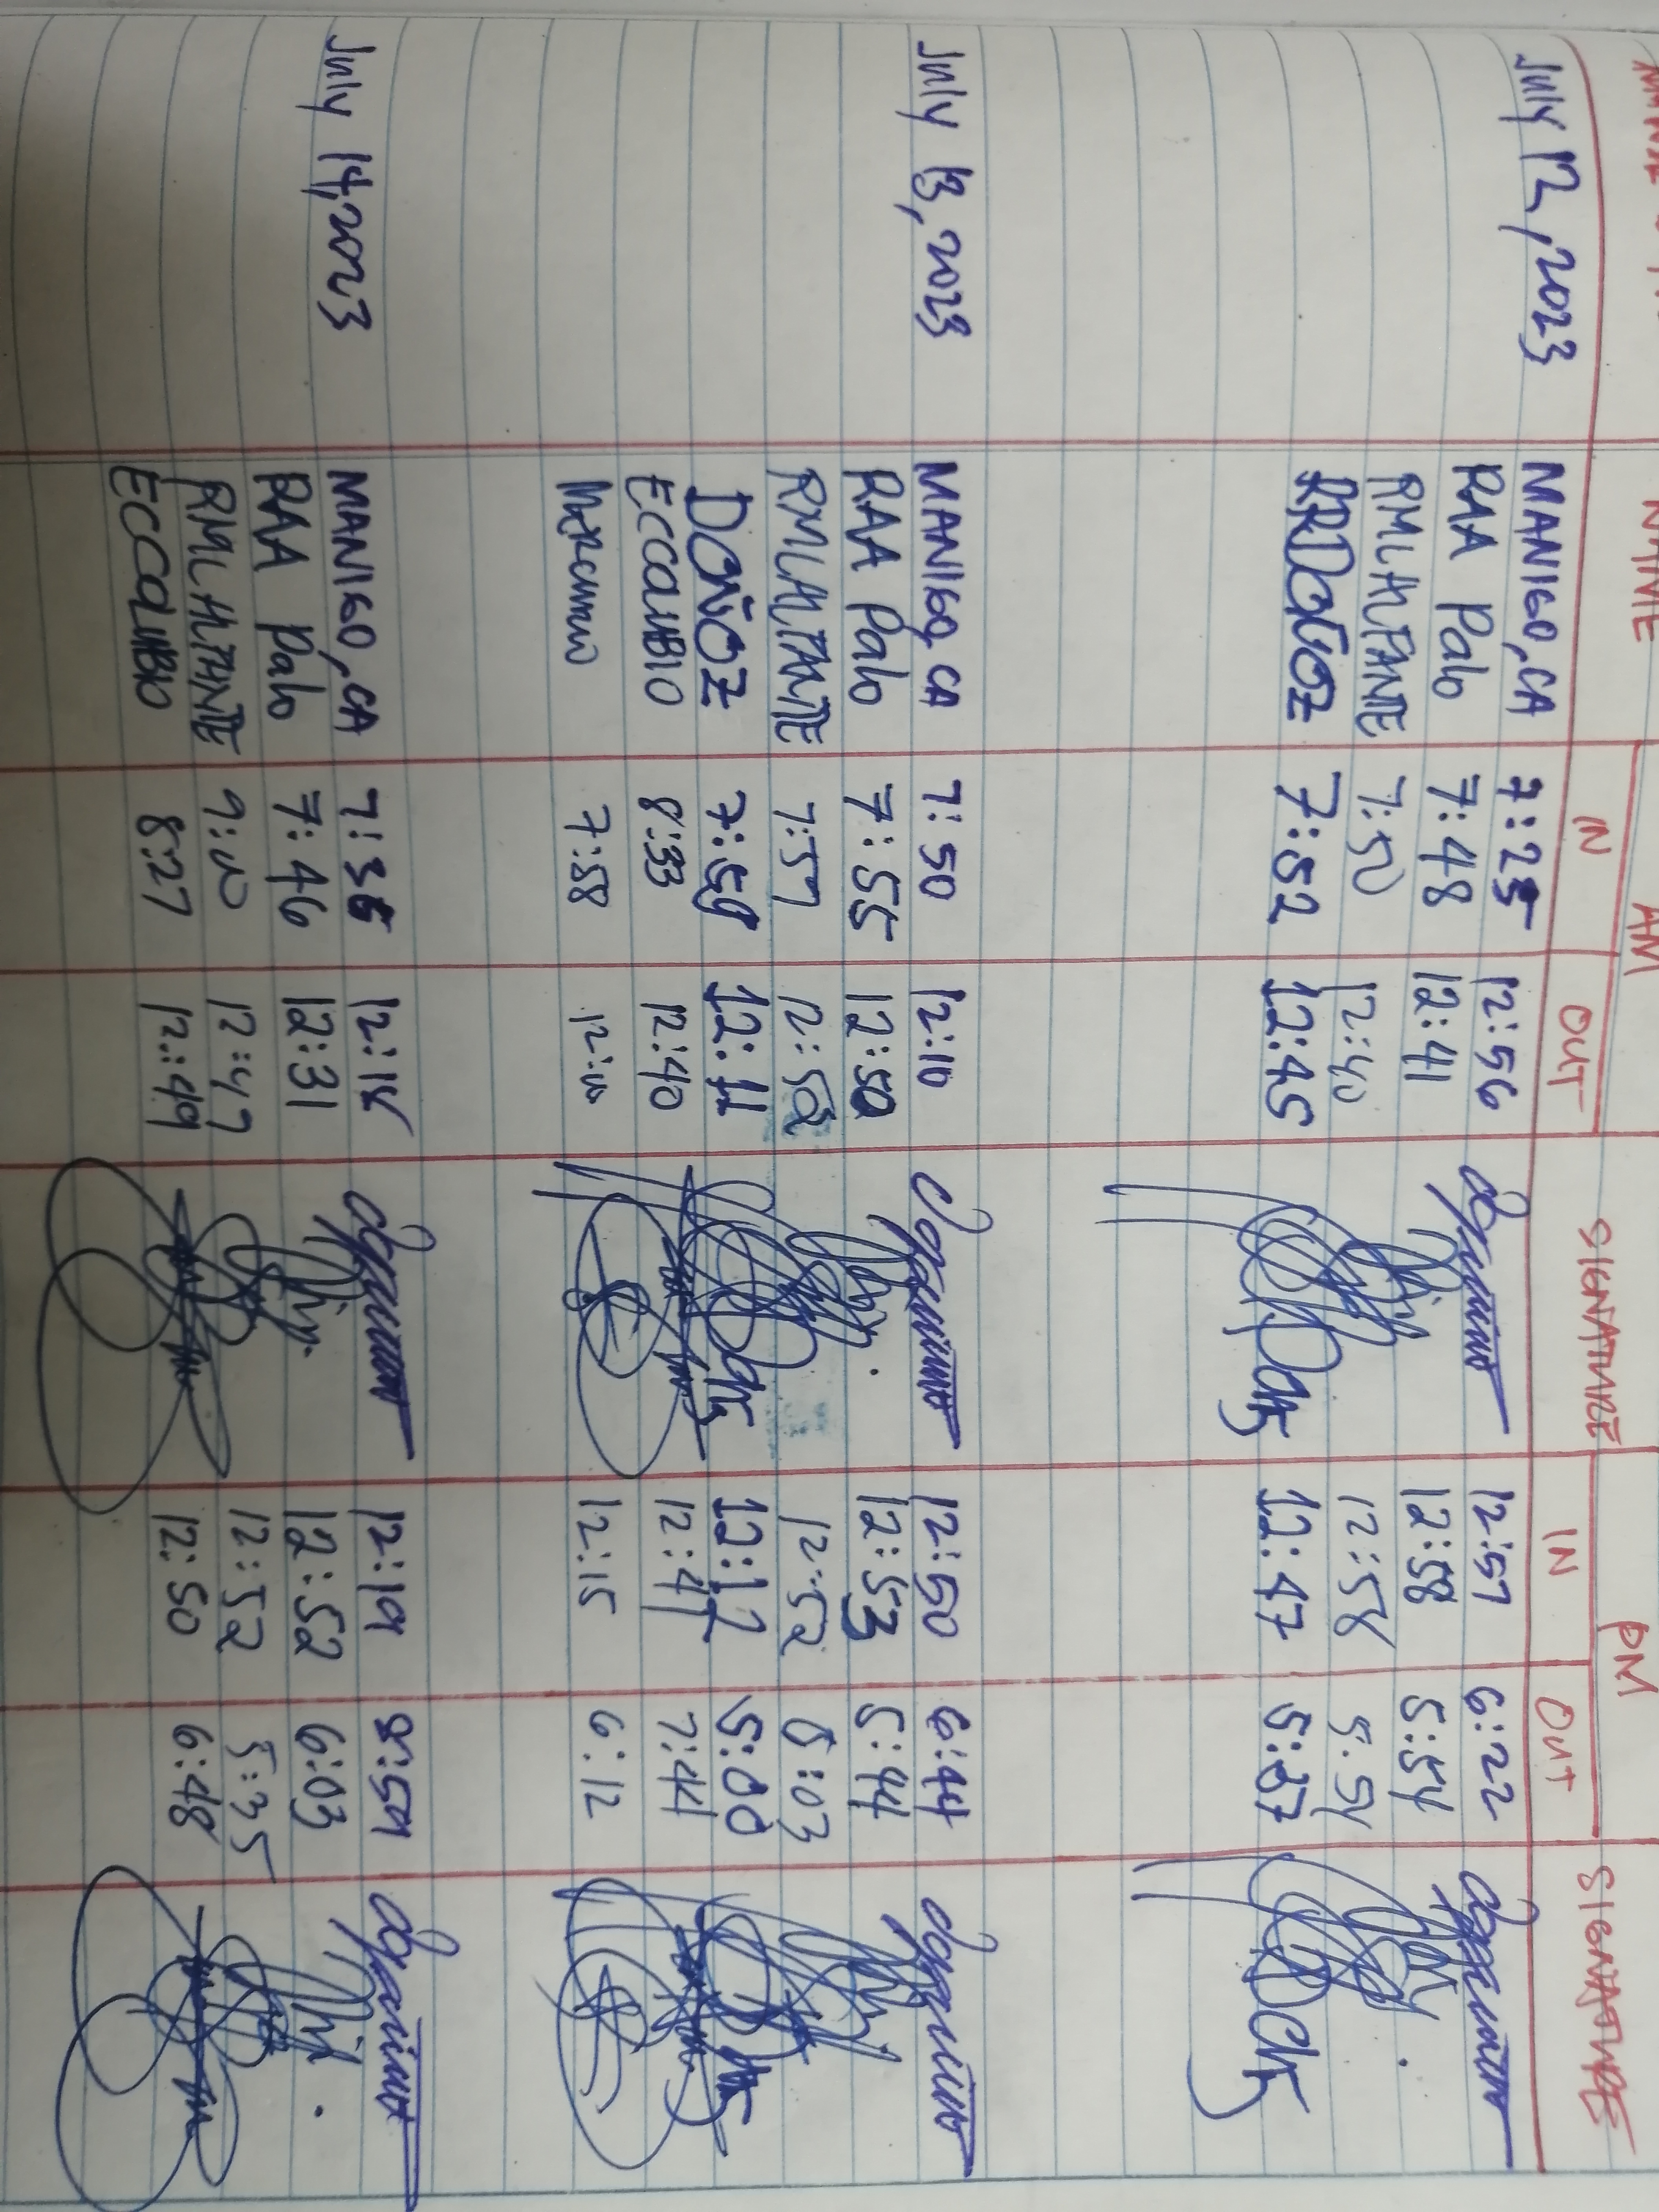 NAME
AM
PM
IN OUT SIGNATURE IN OUT SIGNATURE
July 12, 2023 MANIGO, CA 7:25 12:56 12:57 6:22
RAA Palo 7:48 12:41 12:58 5:54
RMLAMPANTE 7:50 12:40 12:58 5:54
RRDOÑOZ 7:52 12:45 12:47 5:37
July 13, 2023 MANIGO, CA 7:50 12:10 12:50 6:44
RAA Palo 7:55 12:50 12:53 5:44
RMLAMPANTE 7:57 12:52 12:52 6:03
DOÑOZ 7:59 12:11 12:12 5:00
ECCOLIMBIO 8:33 12:40 12:41 7:44
7:58 12:10 12:15 6:12
July 14, 2023 MANIGO, CA 7:36 12:18 12:19 8:59
RAA Palo 7:46 12:31 12:52 6:03
RMLAMPANTE 9:00 12:47 12:52 5:35
ECCOLIMBIO 8:27 12:49 12:50 6:48